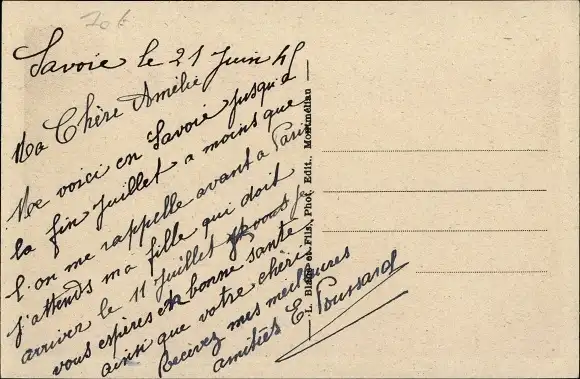 Savoie le 21 Juin 45
Ma Chère Amélie
Me voici en Savoie jusqu'à
la fin Juillet a moins que
l'on me rappelle avant a Paris
J'attends ma fille qui doit
arriver le 11 Juillet
vous espères en bonne santé
ainsi que votre chéri
Recevez mes meilleures
amitiés E Poussard
L. Blanc et Fils, Phot. Edit., Montmélian